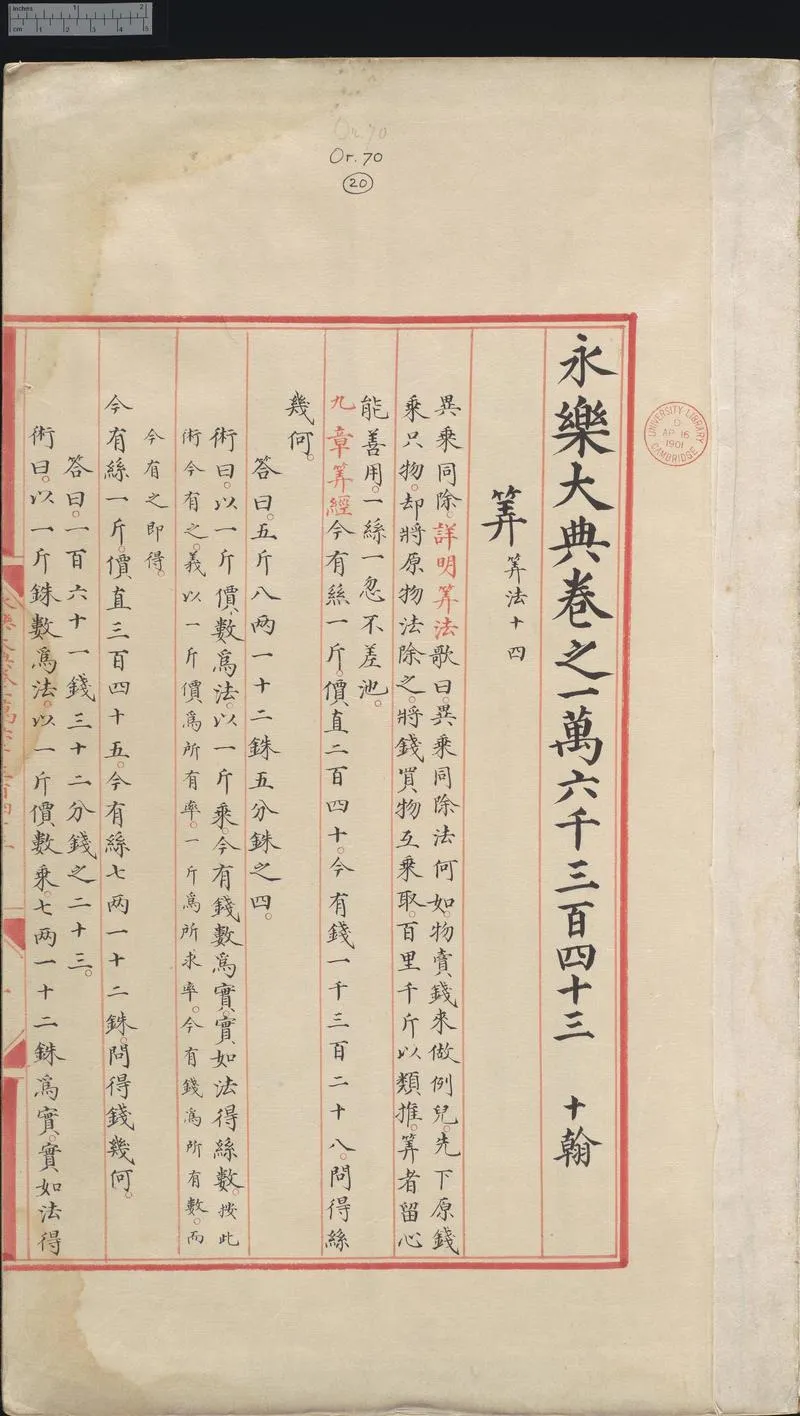 inches 1 2
cm 1 2 3 4 5
Or. 70
Or. 70
20
UNIVERSITY LIBRARY
CAMBRIDGE
AP 16
1901
永樂大典卷之一萬六千三百四十三 十翰
筭 筭法十四
異乘同除。詳明筭法歌曰。異乘同除法何如。物賣錢來做例兒。先下原錢
乘只物。却將原物法除之。將錢買物互乘取。百里千斤以類推。筭者留心
能善用。一絲一忽不差池。
九章筭經今有絲一斤。價直二百四十。今有錢一千三百二十八。問得絲
幾何。
答曰。五斤八兩一十二銖五分銖之四。
術曰。以一斤價數爲法。以一斤乘。今有錢數爲實。實如法得絲數。按此
術今有之。義以一斤價爲所有率。一斤爲所求率。今有錢爲所有數。而
今有之即得。
今有絲一斤。價直三百四十五。今有絲七兩一十二銖。問得錢幾何。
答曰。一百六十一錢三十二分錢之二十三。
術曰。以一斤銖數爲法。以一斤價數乘。七兩一十二銖爲實。實如法得